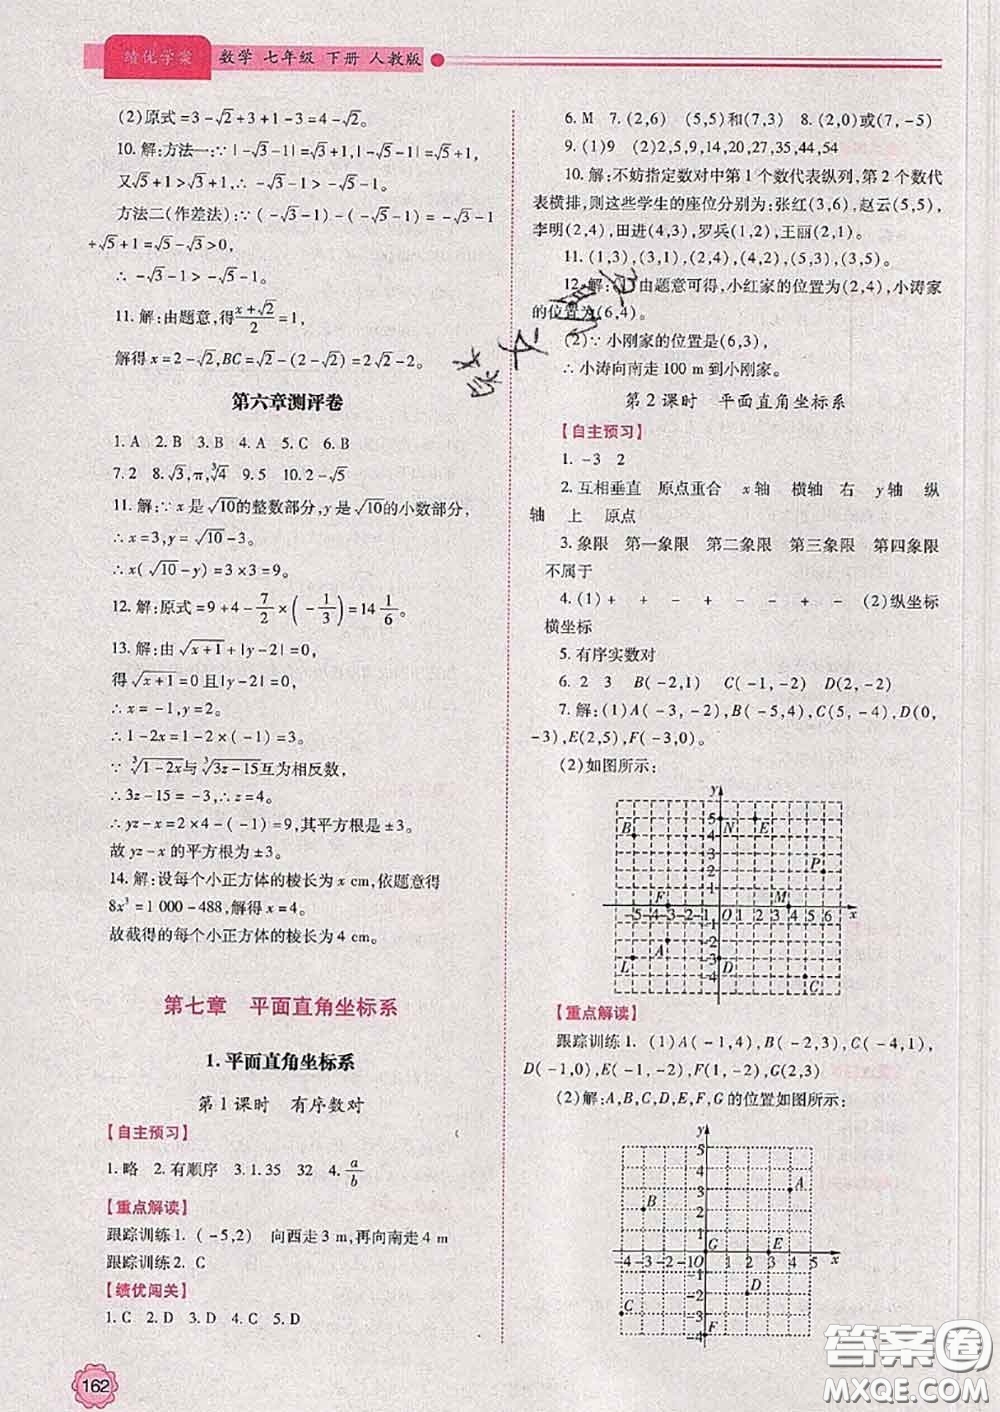 绩优学案 数学 七年级 下册 人教版
(2)原式=3-√2+3+1-3=4-√2。
10.解:方法一:∵|-√3-1|=√3+1,|-√5-1|=√5+1,
又√5+1>√3+1,∴-√3-1>-√5-1。
方法二(作差法):∵(-√3-1)-(-√5-1)=-√3-1
+√5+1=√5-√3>0,
∴-√3-1>-√5-1。
11.解:由题意,得(x+√2)/2=1,
解得x=2-√2,BC=√2-(2-√2)=2√2-2。
第六章测评卷
1.A 2.B 3.B 4.A 5.C 6.B
7.2 8.√3,π,∛4 9.5 10.2-√5
11.解:∵x是√10的整数部分,y是√10的小数部分,
∴x=3,y=√10-3。
∴x(√10-y)=3×3=9。
12.解:原式=9+4-7/2×(-1/3)=14 1/6。
13.解:由√(x+1)+|y-2|=0,
得√(x+1)=0且|y-2|=0。
∴x=-1,y=2。
∴1-2x=1-2×(-1)=3。
∵∛(1-2x)与∛(3z-15)互为相反数,
∴3z-15=-3,∴z=4。
∴yz-x=2×4-(-1)=9,其平方根是±3。
故yz-x的平方根为±3。
14.解:设每个小正方体的棱长为x cm,依题意得
8x³=1 000-488,解得x=4。
故截得的每个小正方体的棱长为4 cm。
第七章 平面直角坐标系
1.平面直角坐标系
第1课时 有序数对
【自主预习】
1.略 2.有顺序 3.1.35 32 4.a/b
【重点解读】
跟踪训练1.(-5,2) 向西走3 m,再向南走4 m
跟踪训练2.C
【绩优闯关】
1.C 2.D 3.D 4.C 5.D
162
6.M 7.(2,6) (5,5)和(7,3) 8.(2,0)或(7,-5)
9.(1)9 (2)2,5,9,14,20,27,35,44,54
10.解:不妨指定数对中第1个数代表纵列,第2个数代
表横排,则这些学生的座位分别为:张红(3,6),赵云(5,5),
李明(2,4),田进(4,3),罗兵(1,2),王丽(2,1)。
11.(1,3),(3,1),(2,4),(4,2),(5,3),(3,5)。
12.解:(1)由题意可得,小红家的位置为(2,4),小涛家
的位置为(6,4)。
(2)∵小刚家的位置是(6,3),
∴小涛向南走100 m到小刚家。
第2课时 平面直角坐标系
【自主预习】
1.-3 2
2.互相垂直 原点重合 x轴 横轴 右 y轴 纵
轴 上 原点
3.象限 第一象限 第二象限 第三象限 第四象限
不属于
4.(1)+ + - + - - + - (2)纵坐标
横坐标
5.有序实数对
6.2 3 B(-2,1) C(-1,-2) D(2,-2)
7.解:(1)A(-3,-2),B(-5,4),C(5,-4),D(0,
-3),E(2,5),F(-3,0)。
(2)如图所示:
y
5 N E
B 4
3
P
2
1
F M
-5 -4 -3 -2 -1 O 1 2 3 4 5 6 x
-1
A -2
L -3 D
-4 C
【重点解读】
跟踪训练1.(1)A(-1,4),B(-2,3),C(-4,1),
D(-1,0),E(-1,-2),F(1,-2),G(2,3)
(2)解:A,B,C,D,E,F,G的位置如图所示:
y
5
4
3 A
B 2
1
G E
-4 -3 -2 -1 O 1 2 3 4 5 x
-1
-2 D
C -3
-4 F
答案圈
MXQE.COM